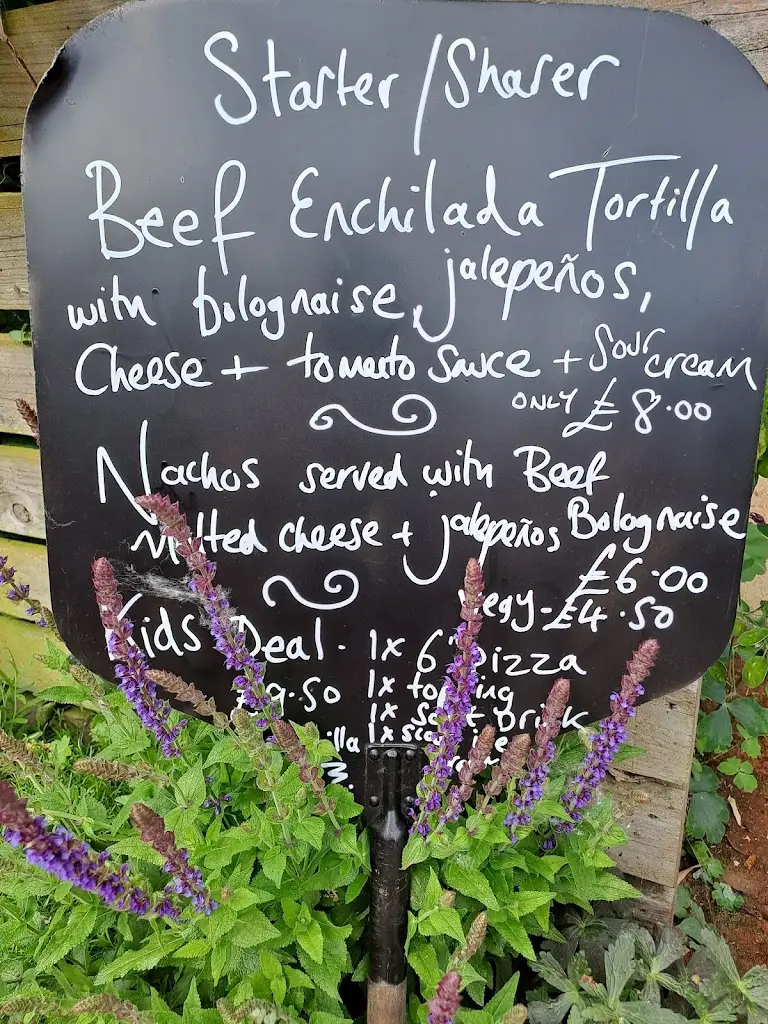 Starter/Sharer
Beef Enchilada Tortilla
with bolognaise, jalepeños,
Cheese + tomato sauce + Sour cream
ONLY £8.00
Nachos served with Beef
Melted cheese + jalepeños Bolognaise
£6.00
Vegy-£4.50
Kids Deal - 1x 6" pizza
£9.50 1x topping
1x Soft Drink
1x